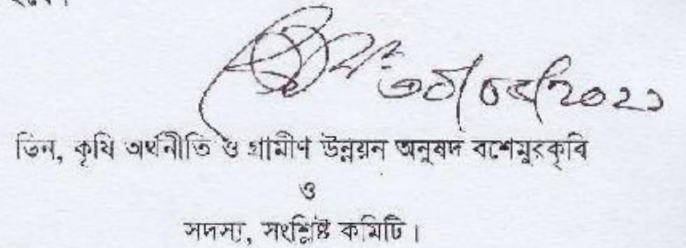 ডিন, কৃষি অর্থনীতি ও গ্রামীণ উন্নয়ন অনুষদ বশেমুরকৃবি
ও
সদস্য, সংশ্লিষ্ট কমিটি।